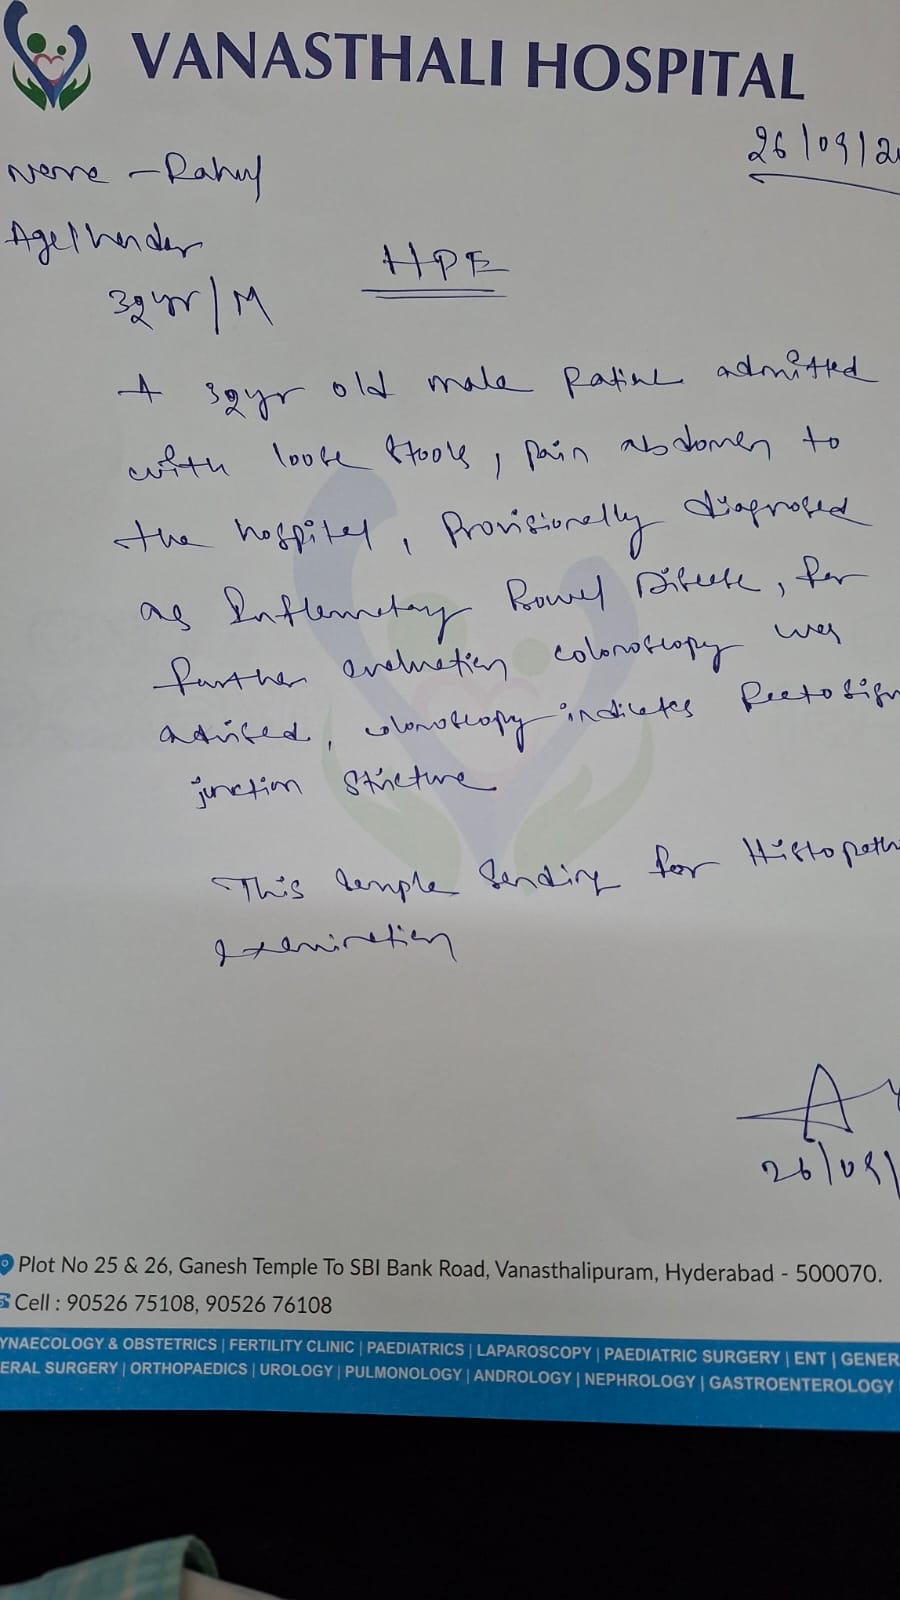 VANASTHALI HOSPITAL
26/09/2
Name - Rahul
Age/Gender
32yr/M
HPE
A 32yr old male Patient admitted
with loose stools, pain abdomen to
the hospital, Provisionally diagnosed
as Inflametory Bowel Disease, for
further evaluation colonoscopy was
advised, colonoscopy indicates Rectosigm
junction stricture
This sample sending for Histopath
examination
26/09/
Plot No 25 & 26, Ganesh Temple To SBI Bank Road, Vanasthalipuram, Hyderabad - 500070.
Cell : 90526 75108, 90526 76108
YNAECOLOGY & OBSTETRICS | FERTILITY CLINIC | PAEDIATRICS | LAPAROSCOPY | PAEDIATRIC SURGERY | ENT | GENER
ERAL SURGERY | ORTHOPAEDICS | UROLOGY | PULMONOLOGY | ANDROLOGY | NEPHROLOGY | GASTROENTEROLOGY